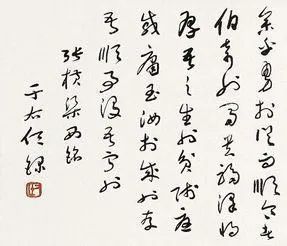 參乎勇於從而順令者
伯奇也富貴福澤將
厚吾之生也貧賤憂
戚庸玉汝於成也存
吾順事沒吾寧也
張橫渠西銘
于右任錄